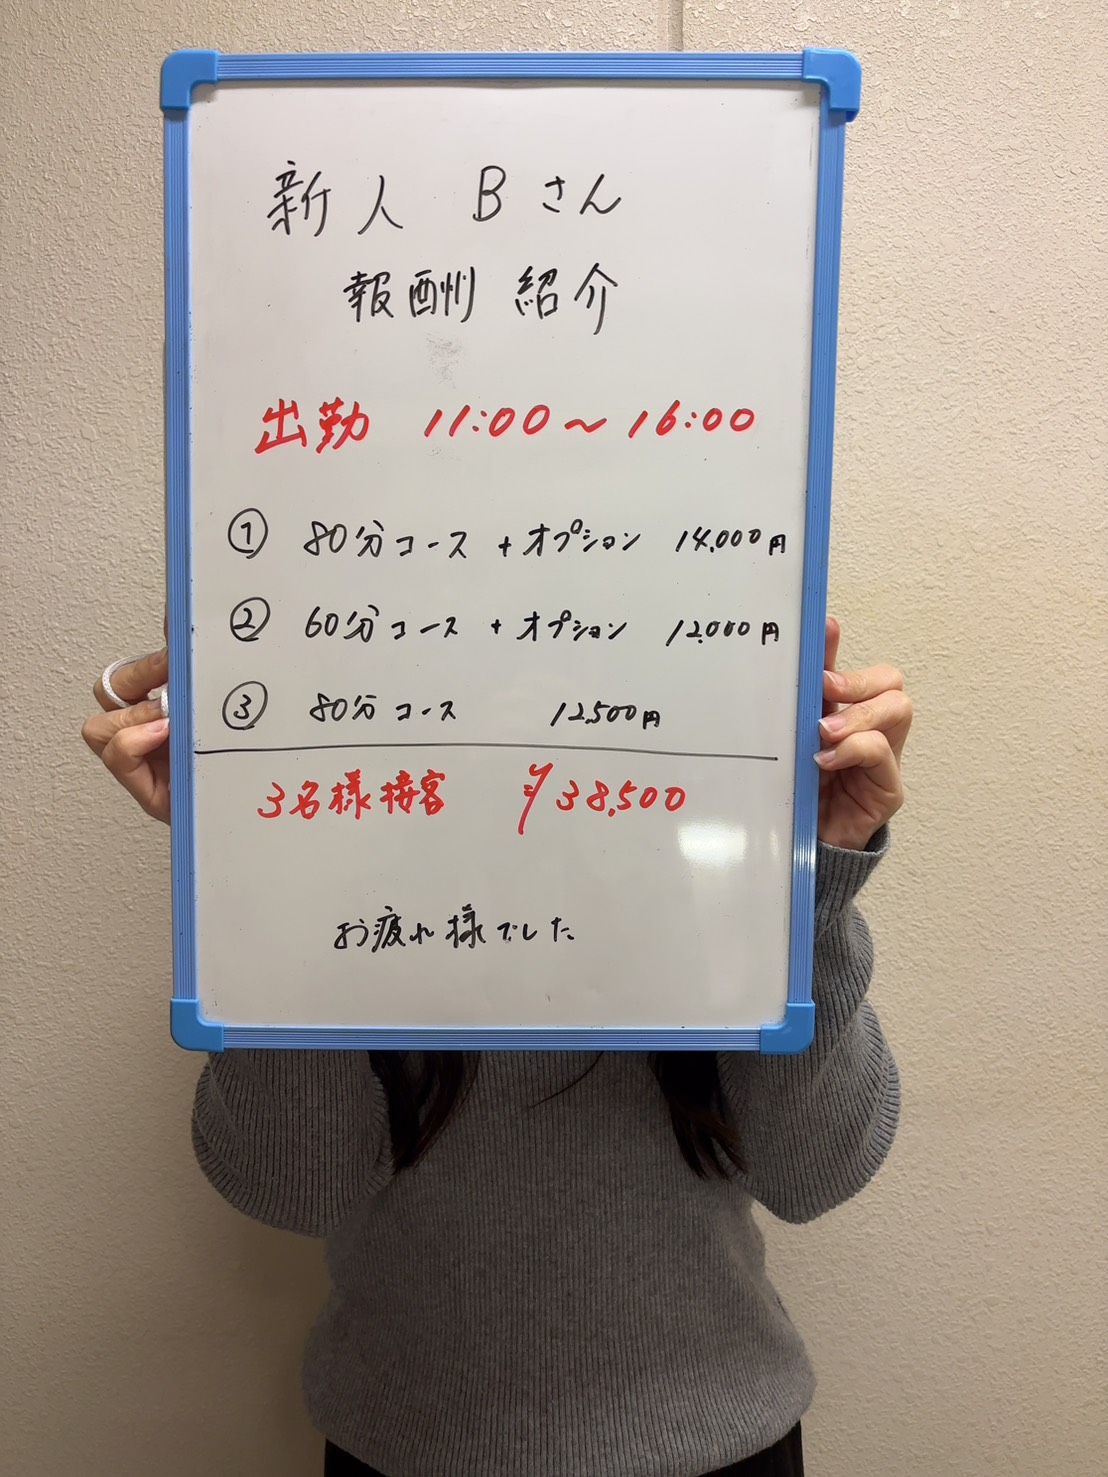 新人 Bさん
報酬 紹介
出勤 11:00～16:00
① 80分コース + オプション 14,000円
② 60分コース + オプション 12,000円
③ 80分コース 12,500円
3名様接客 ¥38,500
お疲れ様でした